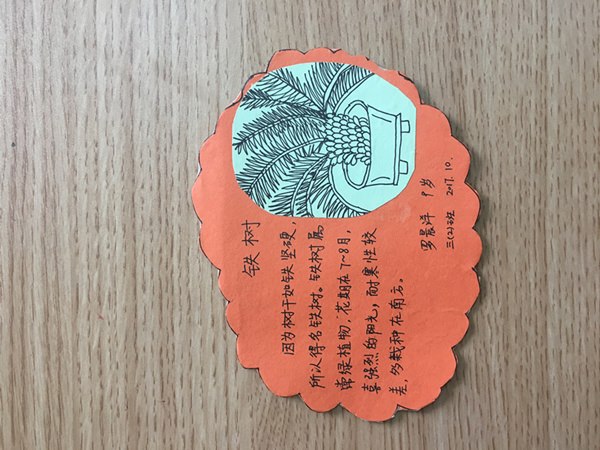 铁树
因为树干如铁坚硬，
所以得名铁树。铁树属
常绿植物，花期在7~8月，
喜强烈的阳光，耐寒性较
差，多栽种在南方。
罗晨洋 9岁
三(2)班 2017.10.